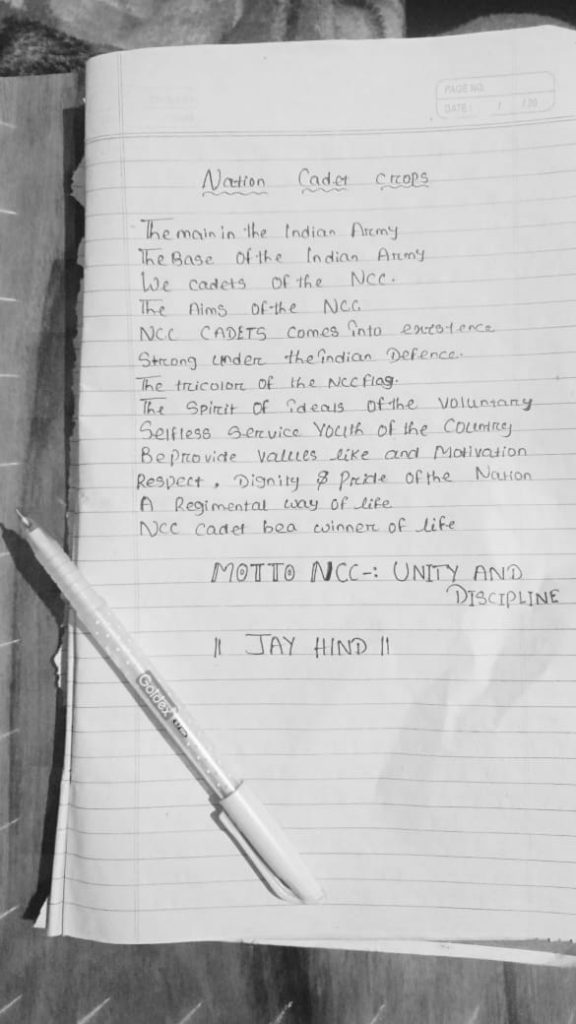 PAGE NO.
DATE: / /20
Nation Cadet crops
The main in the Indian Army
The Base of the Indian Army
We cadets of the NCC.
The Aims of the NCC
NCC CADETS comes into existence
Strong under the indian Defence.
The tricolor of the NCC flag.
The Spirit of ideals of the voluntary
Selfless Service Youth of the Country
Be provide values like and Motivation
Respect, Dignity & Pride of the Nation
A Regimental way of life
NCC cadet be a winner of life
MOTTO NCC-: UNITY AND
DISCIPLINE
|| JAY HIND ||
Goldex